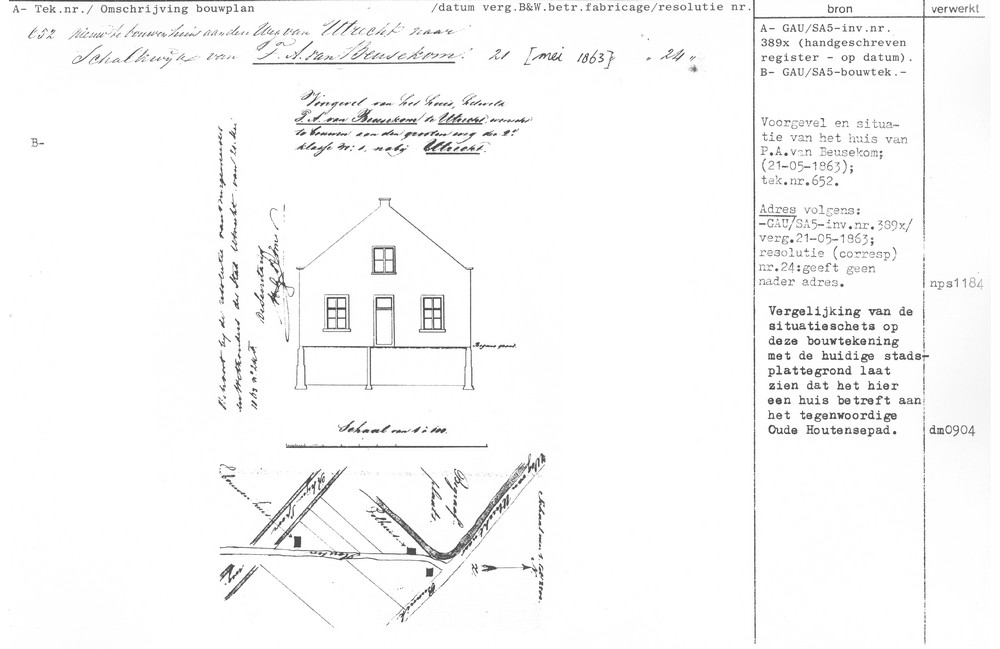 A- Tek.nr./ Omschrijving bouwplan /datum verg.B&W.betr.fabricage/resolutie nr.
bron
verwerkt
652 nieuw te bouwen huis aan den Weg van Utrecht naar
Schalkwijk van P. A. van Beusekom. 21 [mei 1863] „ 24 „
A- GAU/SA5-inv.nr.
389x (handgeschreven
register - op datum).
B- GAU/SA5-bouwtek.-
B-
Voorgevel van het huis, hetwelk
P. A. van Beusekom te Utrecht, wenscht
te bouwen aan den grooten weg der 2e
klasse N: 1, nabij Utrecht.
Behoort bij de resolutie van burgemeester
en Wethouders der Stad Utrecht van 21 Mei
1863 No 24
De Secretaris
Voorgevel en situa-
tie van het huis van
P.A.van Beusekom;
(21-05-1863);
tek.nr.652.
Adres volgens:
-GAU/SA5-inv.nr.389x/
verg.21-05-1863;
resolutie (corresp)
nr.24:geeft geen
nader adres.
nps1184
Vergelijking van de
situatieschets op
deze bouwtekening
met de huidige stads-
plattegrond laat
zien dat het hier
een huis betreft aan
het tegenwoordige
Oude Houtensepad.
dm0904
Begane grond.
Schaal van 1 à 100.
Rhijn
Spoor
Houten
Tolhuis
Begraaf
plaats.
Weg van Utrecht naar
Bunnik
N
Z